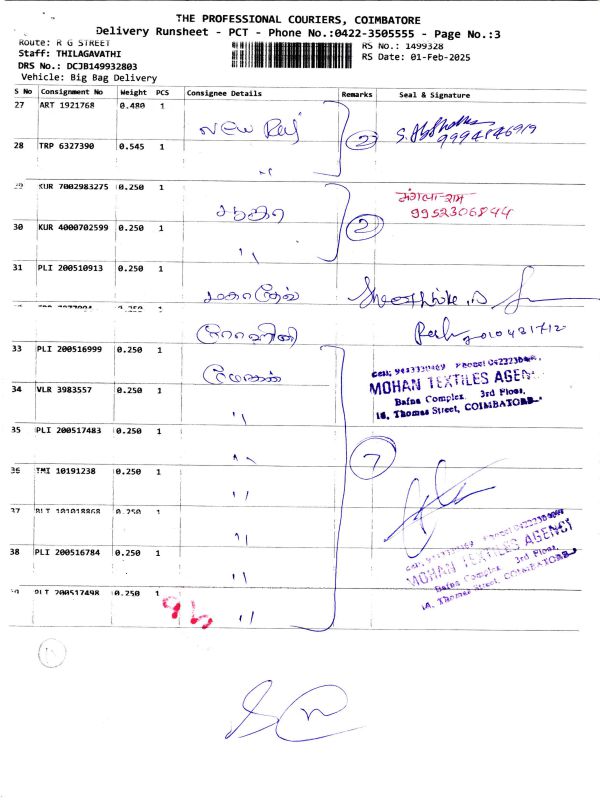 THE PROFESSIONAL COURIERS, COIMBATORE
Delivery Runsheet - PCT - Phone No.:0422-3505555 - Page No.:3
Route: R G STREET
RS No.: 1499328
Staff: THILAGAVATHI
RS Date: 01-Feb-2025
DRS No.: DCJB149932803
Vehicle: Big Bag Delivery
S No Consignment No Weight PCS Consignee Details Remarks Seal & Signature
27 ART 1921768 0.480 1
NEW Raj 2
9994846919
28 TRP 6327390 0.545 1
"
KUR 7002983275 0.250 1
9952306844
2
30 KUR 4000702599 0.250 1
"
31 PLI 200510913 0.250 1
மகாதேவ்
0.250 1
ரோஹினி
33 PLI 200516999 0.250 1
மோகன்
MOHAN TEXTILES AGENCY
Bafna Complex, 3rd Floor,
16, Thomas Street, COIMBATORE-
34 VLR 3983557 0.250 1
"
35 PLI 200517483 0.250 1
"
7
36 TMI 10191238 0.250 1
"
37 PLI 101018868 0.250 1
"
MOHAN TEXTILES AGENCY
Bafna Complex 3rd Floor,
16, Thomas Street, COIMBATORE-
38 PLI 200516784 0.250 1
"
PLI 200517498 0.250 1
"